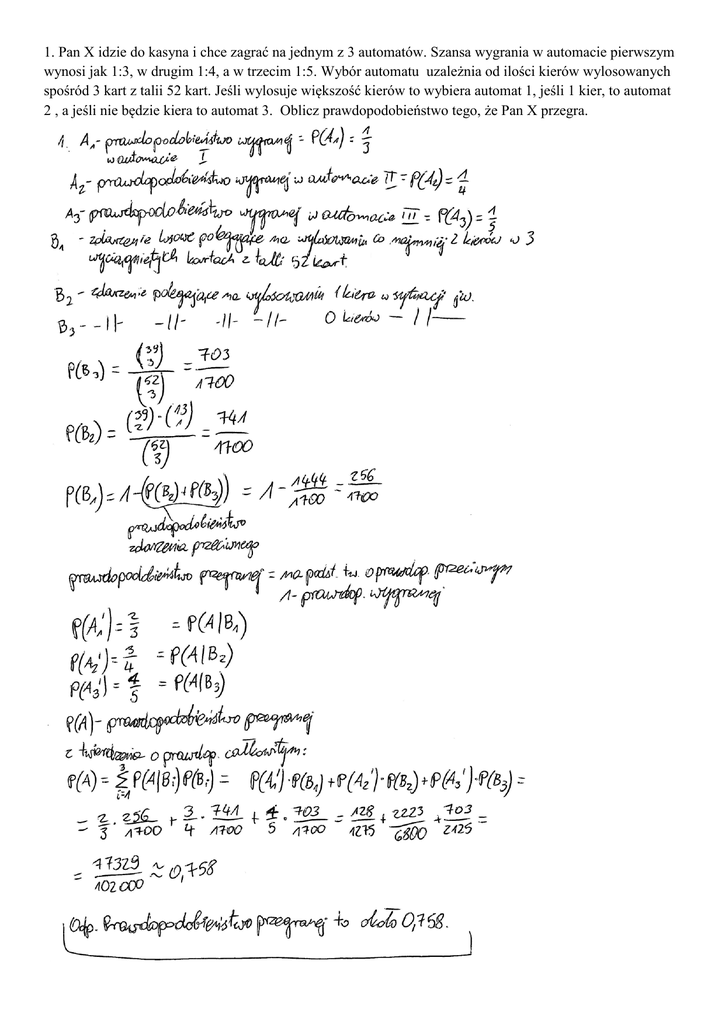 1. Pan X idzie do kasyna i chce zagrać na jednym z 3 automatów. Szansa wygrania w automacie pierwszym
wynosi jak 1:3, w drugim 1:4, a w trzecim 1:5. Wybór automatu uzależnia od ilości kierów wylosowanych
spośród 3 kart z talii 52 kart. Jeśli wylosuje większość kierów to wybiera automat 1, jeśli 1 kier, to automat
2 , a jeśli nie będzie kiera to automat 3. Oblicz prawdopodobieństwo tego, że Pan X przegra.
1. A₁ - prawdopodobieństwo wygranej = P(A₁) = 1/3
w automacie I
A₂ - prawdopodobieństwo wygranej w automacie II = P(A₂) = 1/4
A₃ - prawdopodobieństwo wygranej w automacie III = P(A₃) = 1/5
B₁ - zdarzenie losowe polegające na wylosowaniu co najmniej 2 kierów w 3
wyciągniętych kartach z talii 52 kart.
B₂ - zdarzenie polegające na wylosowaniu 1 kiera w sytuacji jw.
B₃ - -11- -11- -11- -11- 0 kierów - 11 -
P(B₃) = (39 3) / (52 3) = 703/1700
P(B₂) = (39 2)·(13 1) / (52 3) = 741/1700
P(B₁) = 1-(P(B₂)+P(B₃)) = 1 - 1444/1700 = 256/1700
prawdopodobieństwo
zdarzenia przeciwnego
prawdopodobieństwo przegranej = na podst. tw. o prawdop. przeciwnym
1 - prawdop. wygranej
P(A₁') = 2/3 = P(A|B₁)
P(A₂') = 3/4 = P(A|B₂)
P(A₃') = 4/5 = P(A|B₃)
P(A) - prawdopodobieństwo przegranej
z twierdzenia o prawdop. całkowitym:
P(A) = 3 Σ i=1 P(A|Bᵢ) P(Bᵢ) = P(A₁')·P(B₁) + P(A₂')·P(B₂) + P(A₃')·P(B₃) =
= 2/3 · 256/1700 + 3/4 · 741/1700 + 4/5 · 703/1700 = 128/1275 + 2223/6800 + 703/2125 =
= 77329/102000 ≈ 0,758
Odp. Prawdopodobieństwo przegranej to około 0,758.